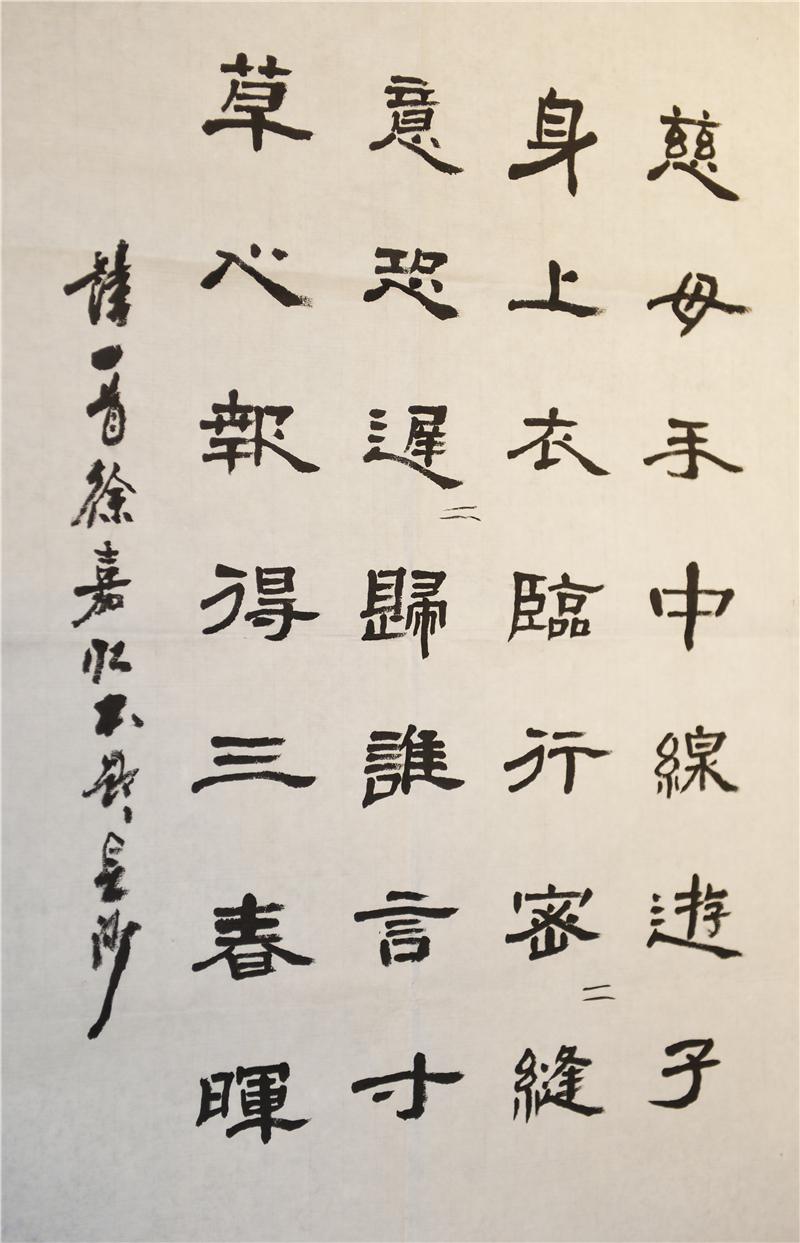 慈母手中線遊子
身上衣臨行密〻縫
意恐遲〻歸誰言寸
草心報得三春暉
詩一首徐嘉
長沙